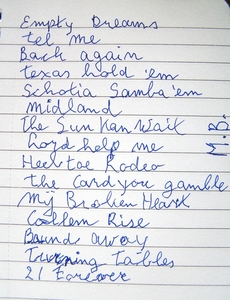 Empty Dreams
tel me
Back again
Texas hold 'em
Schotia Samba'em
midland
The Sun Kan Wait
Lord help me
Heel toe Rodeo
the Card you gamble
My Broken Heart
Rise
Bound away
Turning Tables
21 Forever